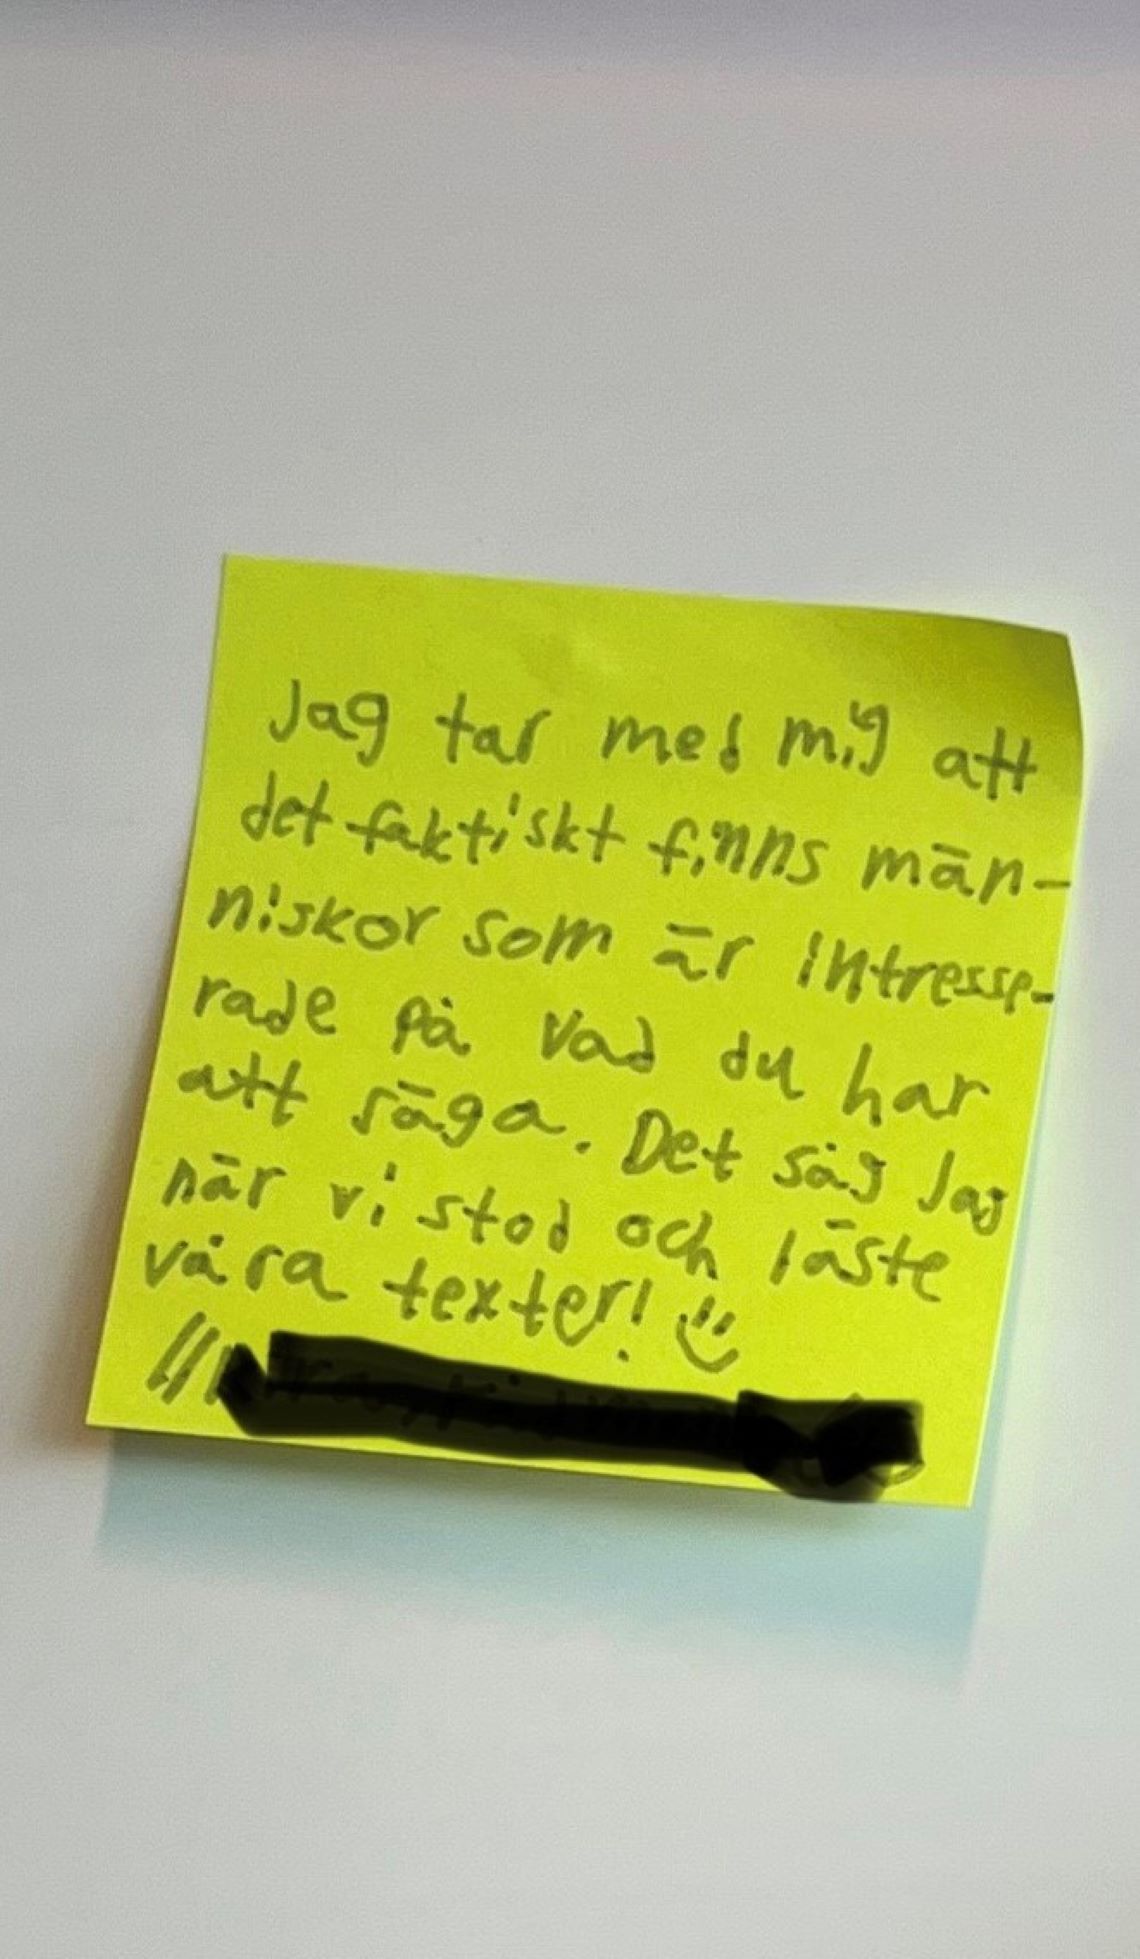 Jag tar med mig att
det faktiskt finns män-
niskor som är intresse-
rade på vad du har
att säga. Det såg Jag
när vi stod och läste
våra texter! :)
//